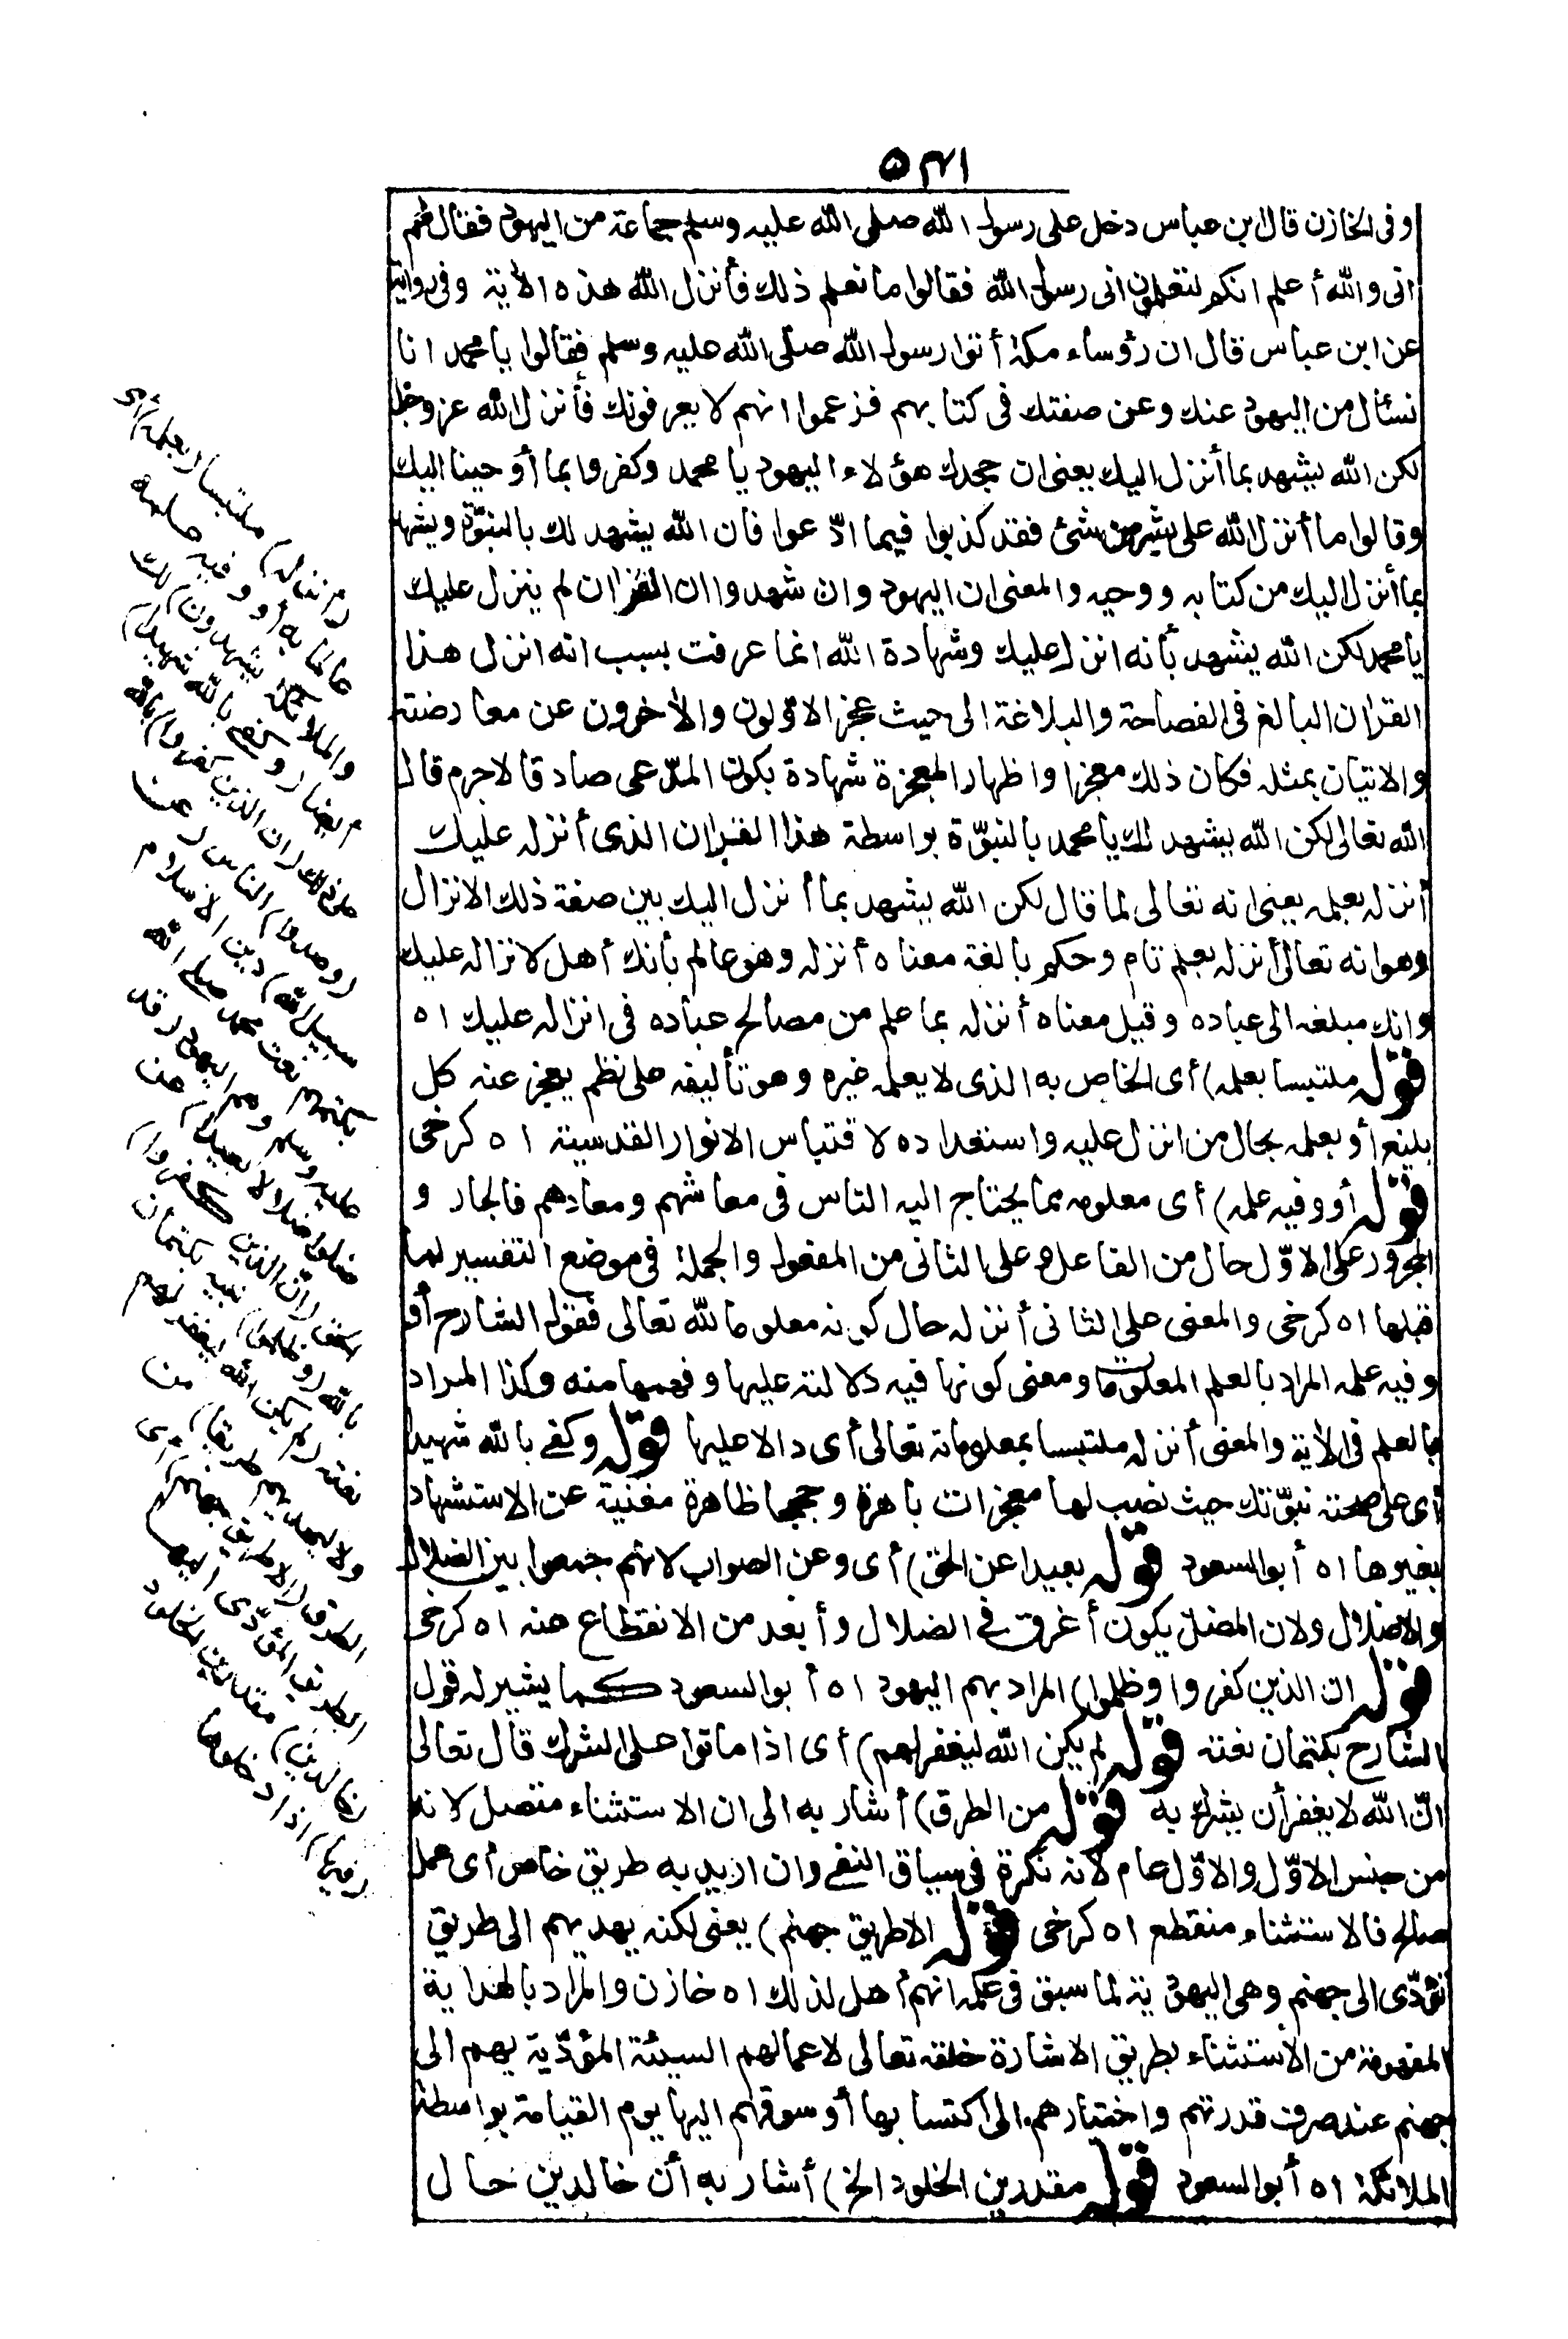 ٥٤١
وفى الخازن قال بن عباس دخل على رسول الله صلى الله عليه وسلم جماعة من اليهود فقال لهم
انى والله أعلم انكم لتعلمون انى رسول الله فقالوا ما نعلم ذلك فأنزل الله هذه الأية وفى رواية
عن ابن عباس قال ان رؤساء مكة أتوا رسول الله صلى الله عليه وسلم فقالوا يا محمد انا
نسئال من اليهود عنك وعن صفتك فى كتابهم فزعموا انهم لا يعرفونك فأنزل الله عزوجل
لكن الله يشهد بما أنزل اليك يعنى ان جحدك هؤلاء اليهود يا محمد وكفروا بما أوحينا اليك
وقالوا ما أنزل الله على بشر من شئ فقد كذبوا فيما ادّعوا فان الله يشهد لك بالنبوّة ويشهد
بما أنزل اليك من كتابه ووحيه والمعنى ان اليهود وان شهدوا ان القران لم ينزل عليك
يا محمد لكن الله يشهد بأنه انزل عليك وشهادة الله انما عرفت بسبب انه انزل هذا
القران البالغ فى الفصاحة والبلاغة الى حيث عجز الاوّلون والأخرون عن معارضته
والاتيان بمثله فكان ذلك معجزا واظهار المعجزة شهادة بكون المدّعى صادقا لاجرم قال
الله تعالى لكن الله يشهد لك يا محمد بالنبوّة بواسطة هذا القران الذى أنزله عليك
أنزله بعلمه يعنى انه تعالى لما قال لكن الله يشهد بما أنزل اليك بين صفة ذلك الانزال
وهو انه تعالى أنزله بعلم تام وحكم بالغة معناه أنزله وهو عالم بأنك أهل لانزاله عليك
وانك مبلغه الى عباده وقيل معناه أنزله بما علم من مصالح عباده فى انزاله عليك اه
قوله ملتبسا بعلمه) أى الخاص به الذى لا يعلمه غيره وهو تأليفه على نظم يعجز عنه كل
بليغ أو بعلمه بحال من انزل عليه واستعداده لاقتباس الانوار القدسية اه كرخى
قوله أو وفيه علمه) أى معلومه مما يحتاج اليه الناس فى معاشهم ومعادهم فالجار و
المجرور على الاوّل حال من الفاعل وعلى الثانى من المفعول والجملة فى موضع التفسير لما
قبلها اه كرخى والمعنى على الثانى أنزله حال كونه معلوما لله تعالى فقول الشارح أو
وفيه علمه المراد بالعلم المعلومات ومعنى كونها فيه دلالته عليها وفهمها منه وكذا المراد
بالعلم فى الأية والمعنى أنزله ملتبسا بمعلوماته تعالى أى دالا عليها قوله وكفى بالله شهيدا
أى على صحة نبوّتك حيث نصب لها معجزات باهرة وحججا ظاهرة مغنية عن الاستشهاد
بغيرها اه أبو السعود قوله بعيدا عن الحق) أى وعن الصواب لانهم جمعوا بين الضلال
والاضلال ولان المضلّ يكون أغرق فى الضلال وأبعد من الانقطاع عنه اه كرخى
قوله ان الذين كفروا وظلموا) المراد بهم اليهود اه أبو السعود كما يشير له قول
الشارح بكتمان نعته قوله لم يكن الله ليغفر لهم) أى اذا ماتوا على الشرك قال تعالى
انّ الله لا يغفر أن يشرك به قوله من الطرق) أشار به الى ان الاستثناء متصل لانه
من جنس الاوّل والاوّل عام لانه نكرة فى سياق النفى وان اريد به طريق خاص أى عمل
صالح فالاستثناء منقطع اه كرخى قوله الا طريق جهنم) يعنى لكنه يهديهم الى طريق
تؤدّى الى جهنم وهى اليهودية لما سبق فى علمه انهم أهل لذلك اه خازن والمراد بالهداية
المفهومة من الاستثناء بطريق الاشارة خلقه تعالى لاعمالهم السيئة المؤدّية بهم الى
جهنم عند صرف قدرتهم واختيارهم الى اكتسابها أو سوقهم اليها يوم القيامة بواسطة
الملائكة اه أبو السعود قوله مقدرين الخلود الخ) أشار به أن خالدين حال
(أنزله) ملتبسا (بعلمه) أى
عالما به أو وفيه علمه
والملائكة يشهدون) لك
أيضا (وكفى بالله شهيدا)
على ذلك (ان الذين كفروا) بالله
(وصدوا) الناس (عن
سبيل الله) دين الاسلام
بكتمهم نعت محمد صلى الله
عليه وسلم وهم اليهود (قد
ضلوا ضلالا بعيدا) عن
الحق (انّ الذين كفروا)
بالله (وظلموا) نبيه بكتمان
نعته (لم يكن الله ليغفر لهم
ولا ليهديهم طريقا) من
الطرق (الا طريق جهنم) أى
الطريق المؤدّى اليها
(خالدين) مقدرين الخلود
(فيها) اذا دخلوها